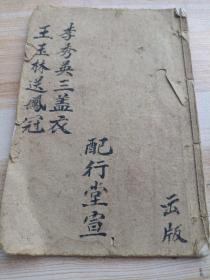 李秀英三盖衣
王玉林送鳳冠
配行堂宣
云版